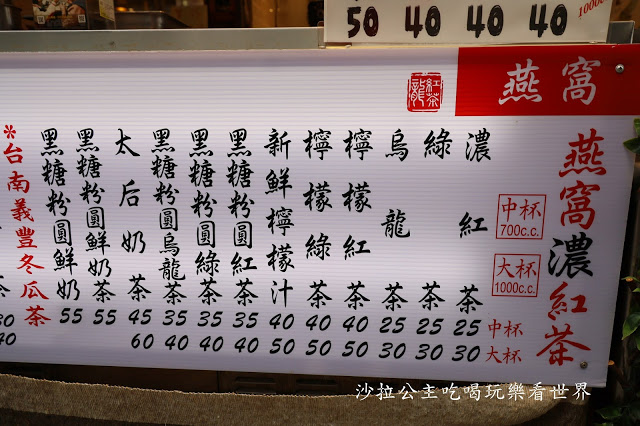 50 40 40 40
燕窩
紅茶龍
燕窩濃紅茶
中杯
700c.c.
大杯
1000c.c.
中杯
大杯
濃紅茶 25 30
綠茶 25 30
烏龍茶 25 30
檸檬紅茶 40 50
檸檬綠茶 40 50
新鮮檸檬汁 40 50
黑糖粉圓紅茶 35 40
黑糖粉圓綠茶 35 40
黑糖粉圓烏龍茶 35 40
太后奶茶 45 60
黑糖粉圓鮮奶茶 55
黑糖粉圓鮮奶 55
*台南義豐冬瓜茶
沙拉公主吃喝玩樂看世界